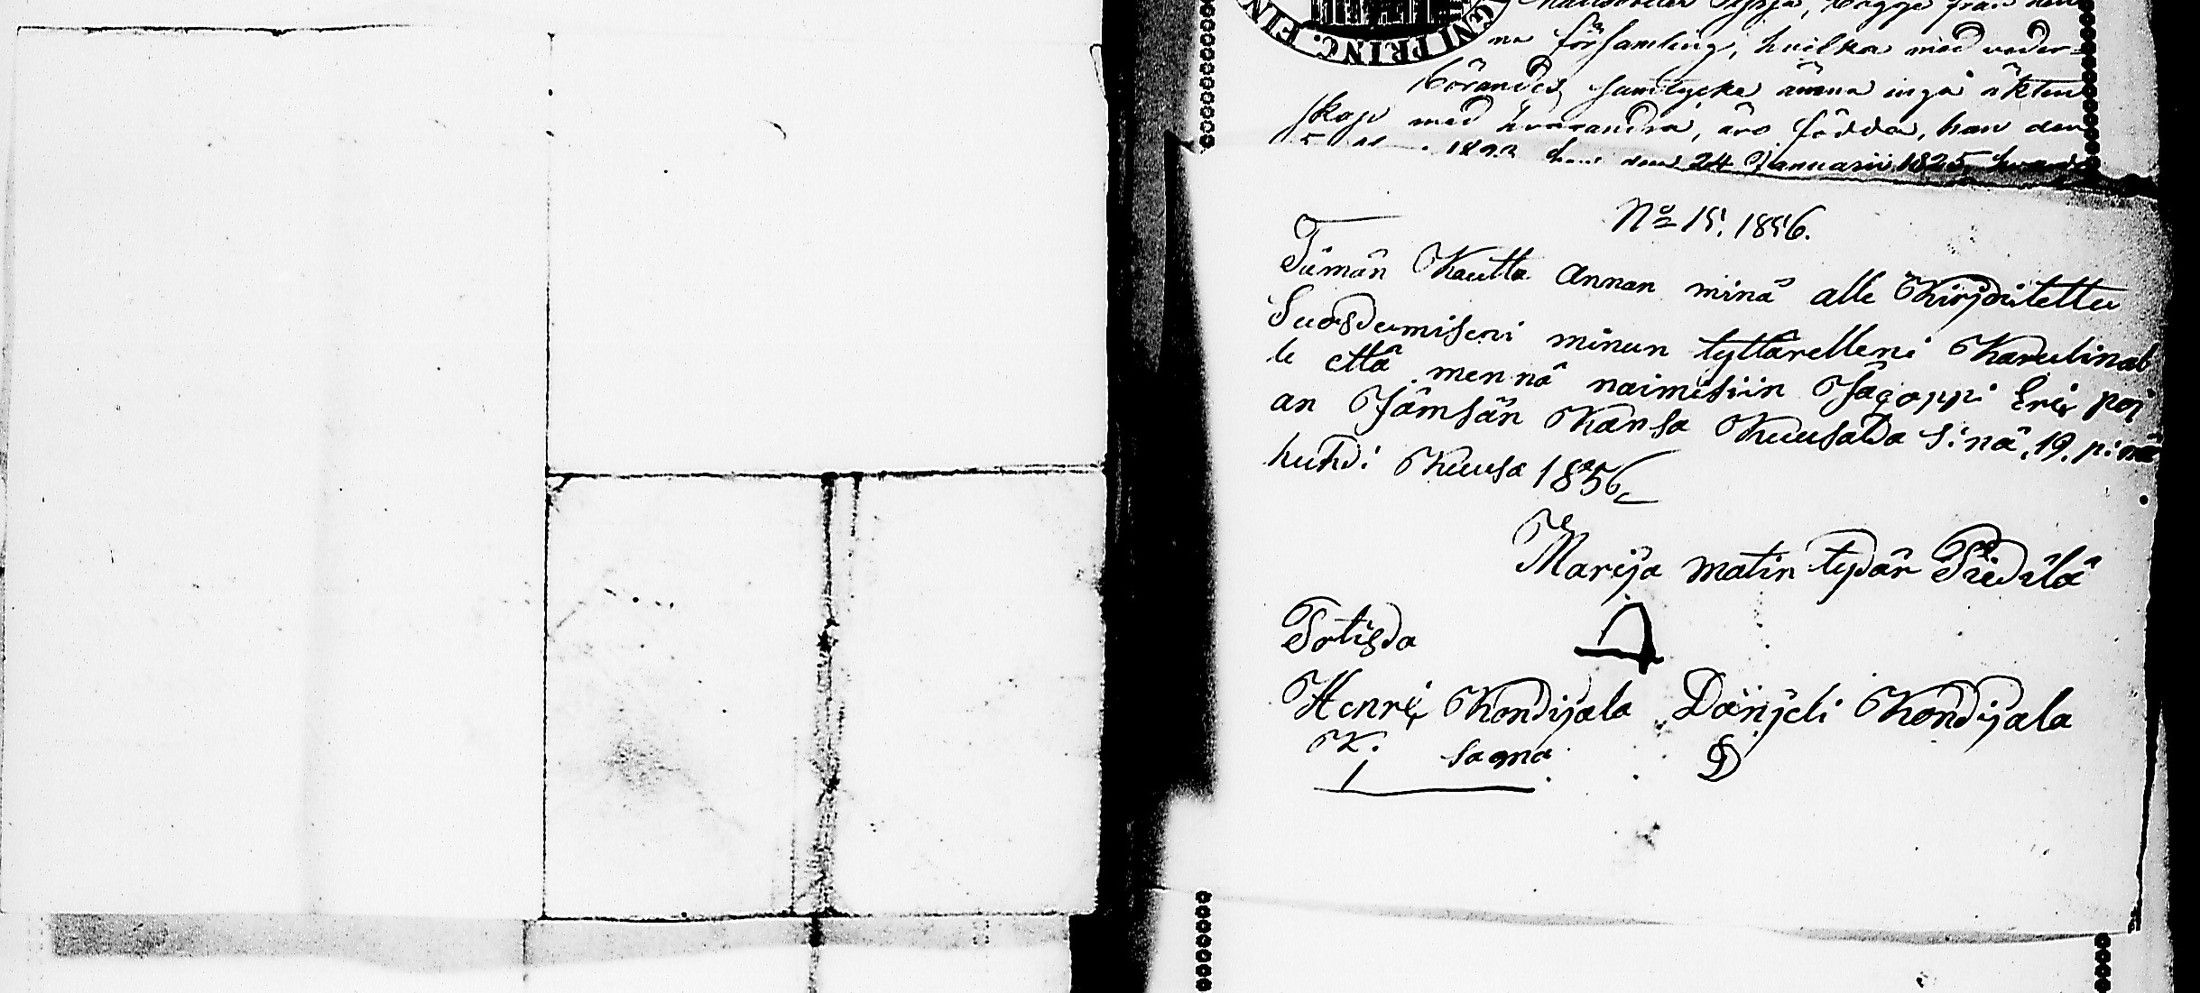 GNI PRINC. FIN
na församling, hvilka med veder-
börandes samtycke ämna ingå äkten
skap med hvarandra, äro födda, han den
1823 hon den 24 Januarii 1825, hvar
No 15. 1856.
Tämän Kautta annan minä alle Kirjoitettu
Suosdumiseni minun tyttärelleni Karulinal
le että mennä naimisiin Jägoppi Eric poj
an Jämsän Kansa Kuusalda sinä 19. pinä
huhdi Kuusa 1856
Marija matin tydär Piedilä
Totisda
Henric Kondijala Dänjeli Kondijala
K. sama D